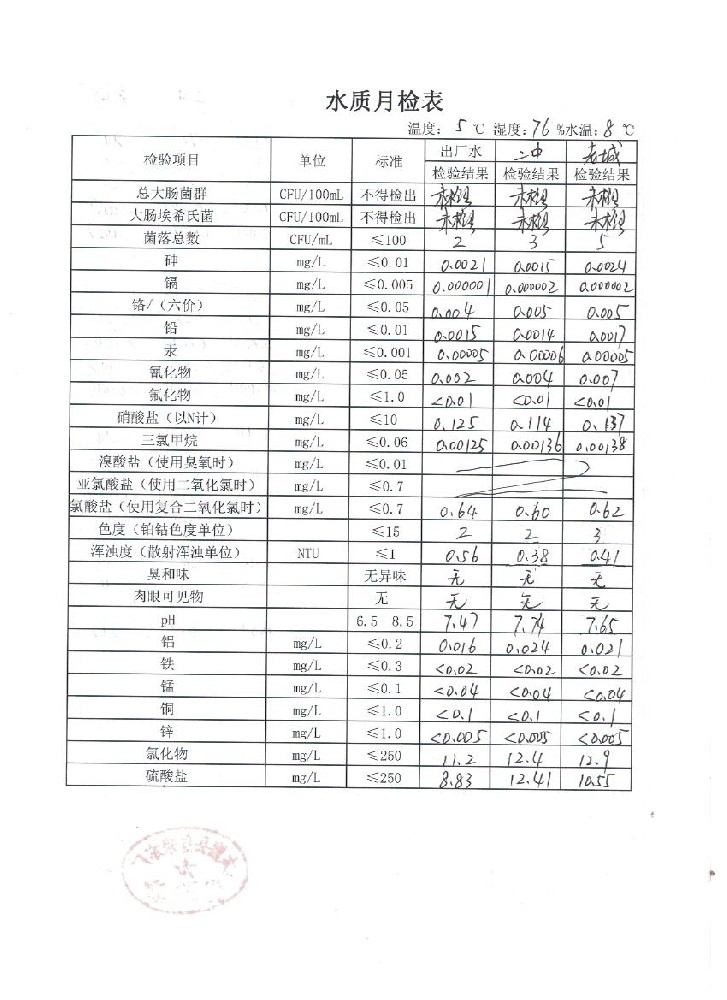 水质月检表
温度: 5 ℃ 湿度: 76 %水温: 8 ℃
检验项目 单位 标准 出厂水 二中 老城
检验结果 检验结果 检验结果
总大肠菌群 CFU/100mL 不得检出 未检出 未检出 未检出
大肠埃希氏菌 CFU/100mL 不得检出 未检出 未检出 未检出
菌落总数 CFU/mL ≤100 2 3 5
砷 mg/L ≤0.01 0.0021 0.0015 0.0024
镉 mg/L ≤0.005 0.000001 0.000002 0.000002
铬/(六价) mg/L ≤0.05 0.004 0.005 0.005
铅 mg/L ≤0.01 0.0015 0.0014 0.0017
汞 mg/L ≤0.001 0.00005 0.00006 0.00005
氰化物 mg/L ≤0.05 0.002 0.004 0.007
氟化物 mg/L ≤1.0 <0.01 <0.01 <0.01
硝酸盐(以N计) mg/L ≤10 0.125 0.114 0.137
三氯甲烷 mg/L ≤0.06 0.00125 0.00136 0.00138
溴酸盐(使用臭氧时) mg/L ≤0.01
亚氯酸盐(使用二氧化氯时) mg/L ≤0.7
氯酸盐(使用复合二氧化氯时) mg/L ≤0.7 0.64 0.60 0.62
色度(铂钴色度单位) ≤15 2 2 3
浑浊度(散射浑浊单位) NTU ≤1 0.56 0.38 0.41
臭和味 无异味 无 无 无
肉眼可见物 无 无 无 无
pH 6.5 8.5 7.47 7.74 7.65
铝 mg/L ≤0.2 0.016 0.024 0.021
铁 mg/L ≤0.3 <0.02 <0.02 <0.02
锰 mg/L ≤0.1 <0.04 <0.04 <0.04
铜 mg/L ≤1.0 <0.1 <0.1 <0.1
锌 mg/L ≤1.0 <0.005 <0.005 <0.005
氯化物 mg/L ≤250 11.2 12.4 12.9
硫酸盐 mg/L ≤250 8.83 12.41 10.55